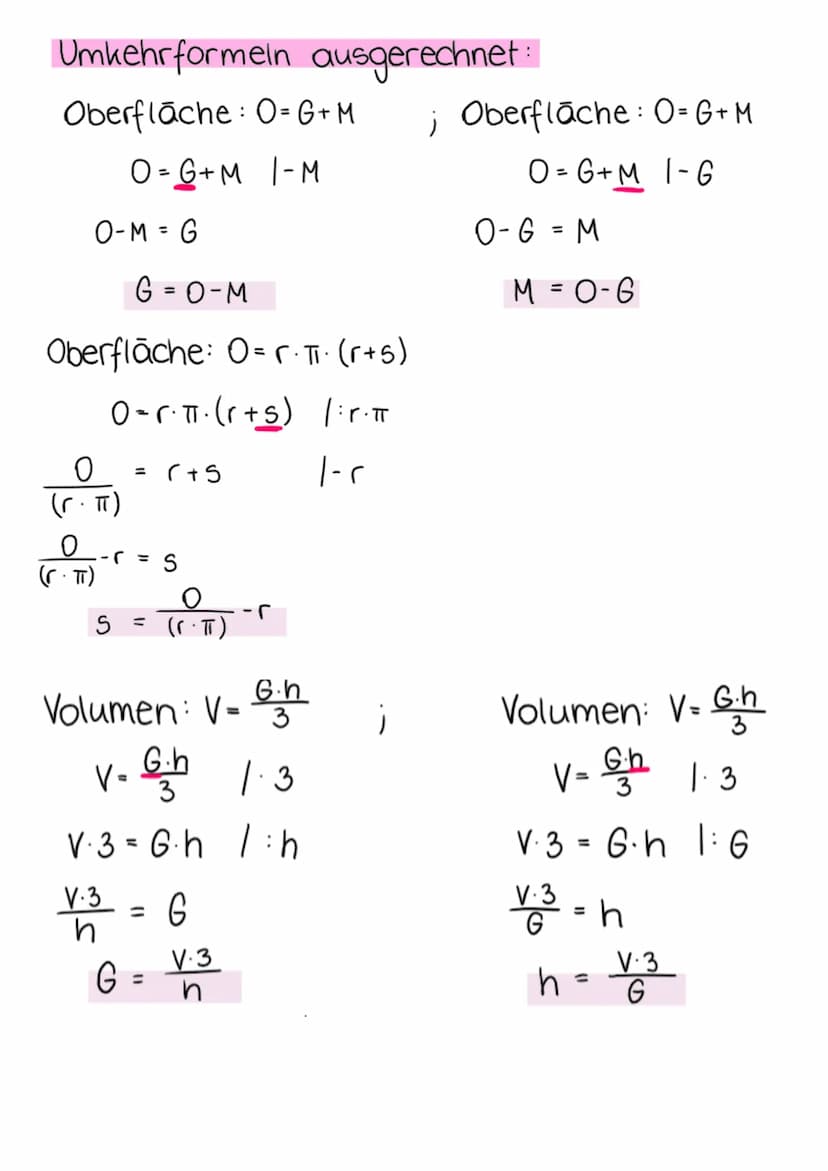 Umkehrformeln ausgerechnet:
Oberfläche: O=G+M ; Oberfläche: O=G+M
O=G+M |-M O=G+M |-G
O-M = G O-G = M
G = O-M M = O-G
Oberfläche: O=r·π·(r+s)
O=r·π·(r+s) /:r·π
O/(r·π) = r+s /-r
O/(r·π) -r = s
s = O/(r·π) -r
Volumen: V= G·h/3 ; Volumen: V= G·h/3
V= G·h/3 /·3 V= G·h/3 |·3
V·3 = G·h /:h V·3 = G·h |:G
V·3/h = G V·3/G = h
G = V·3/h h = V·3/G